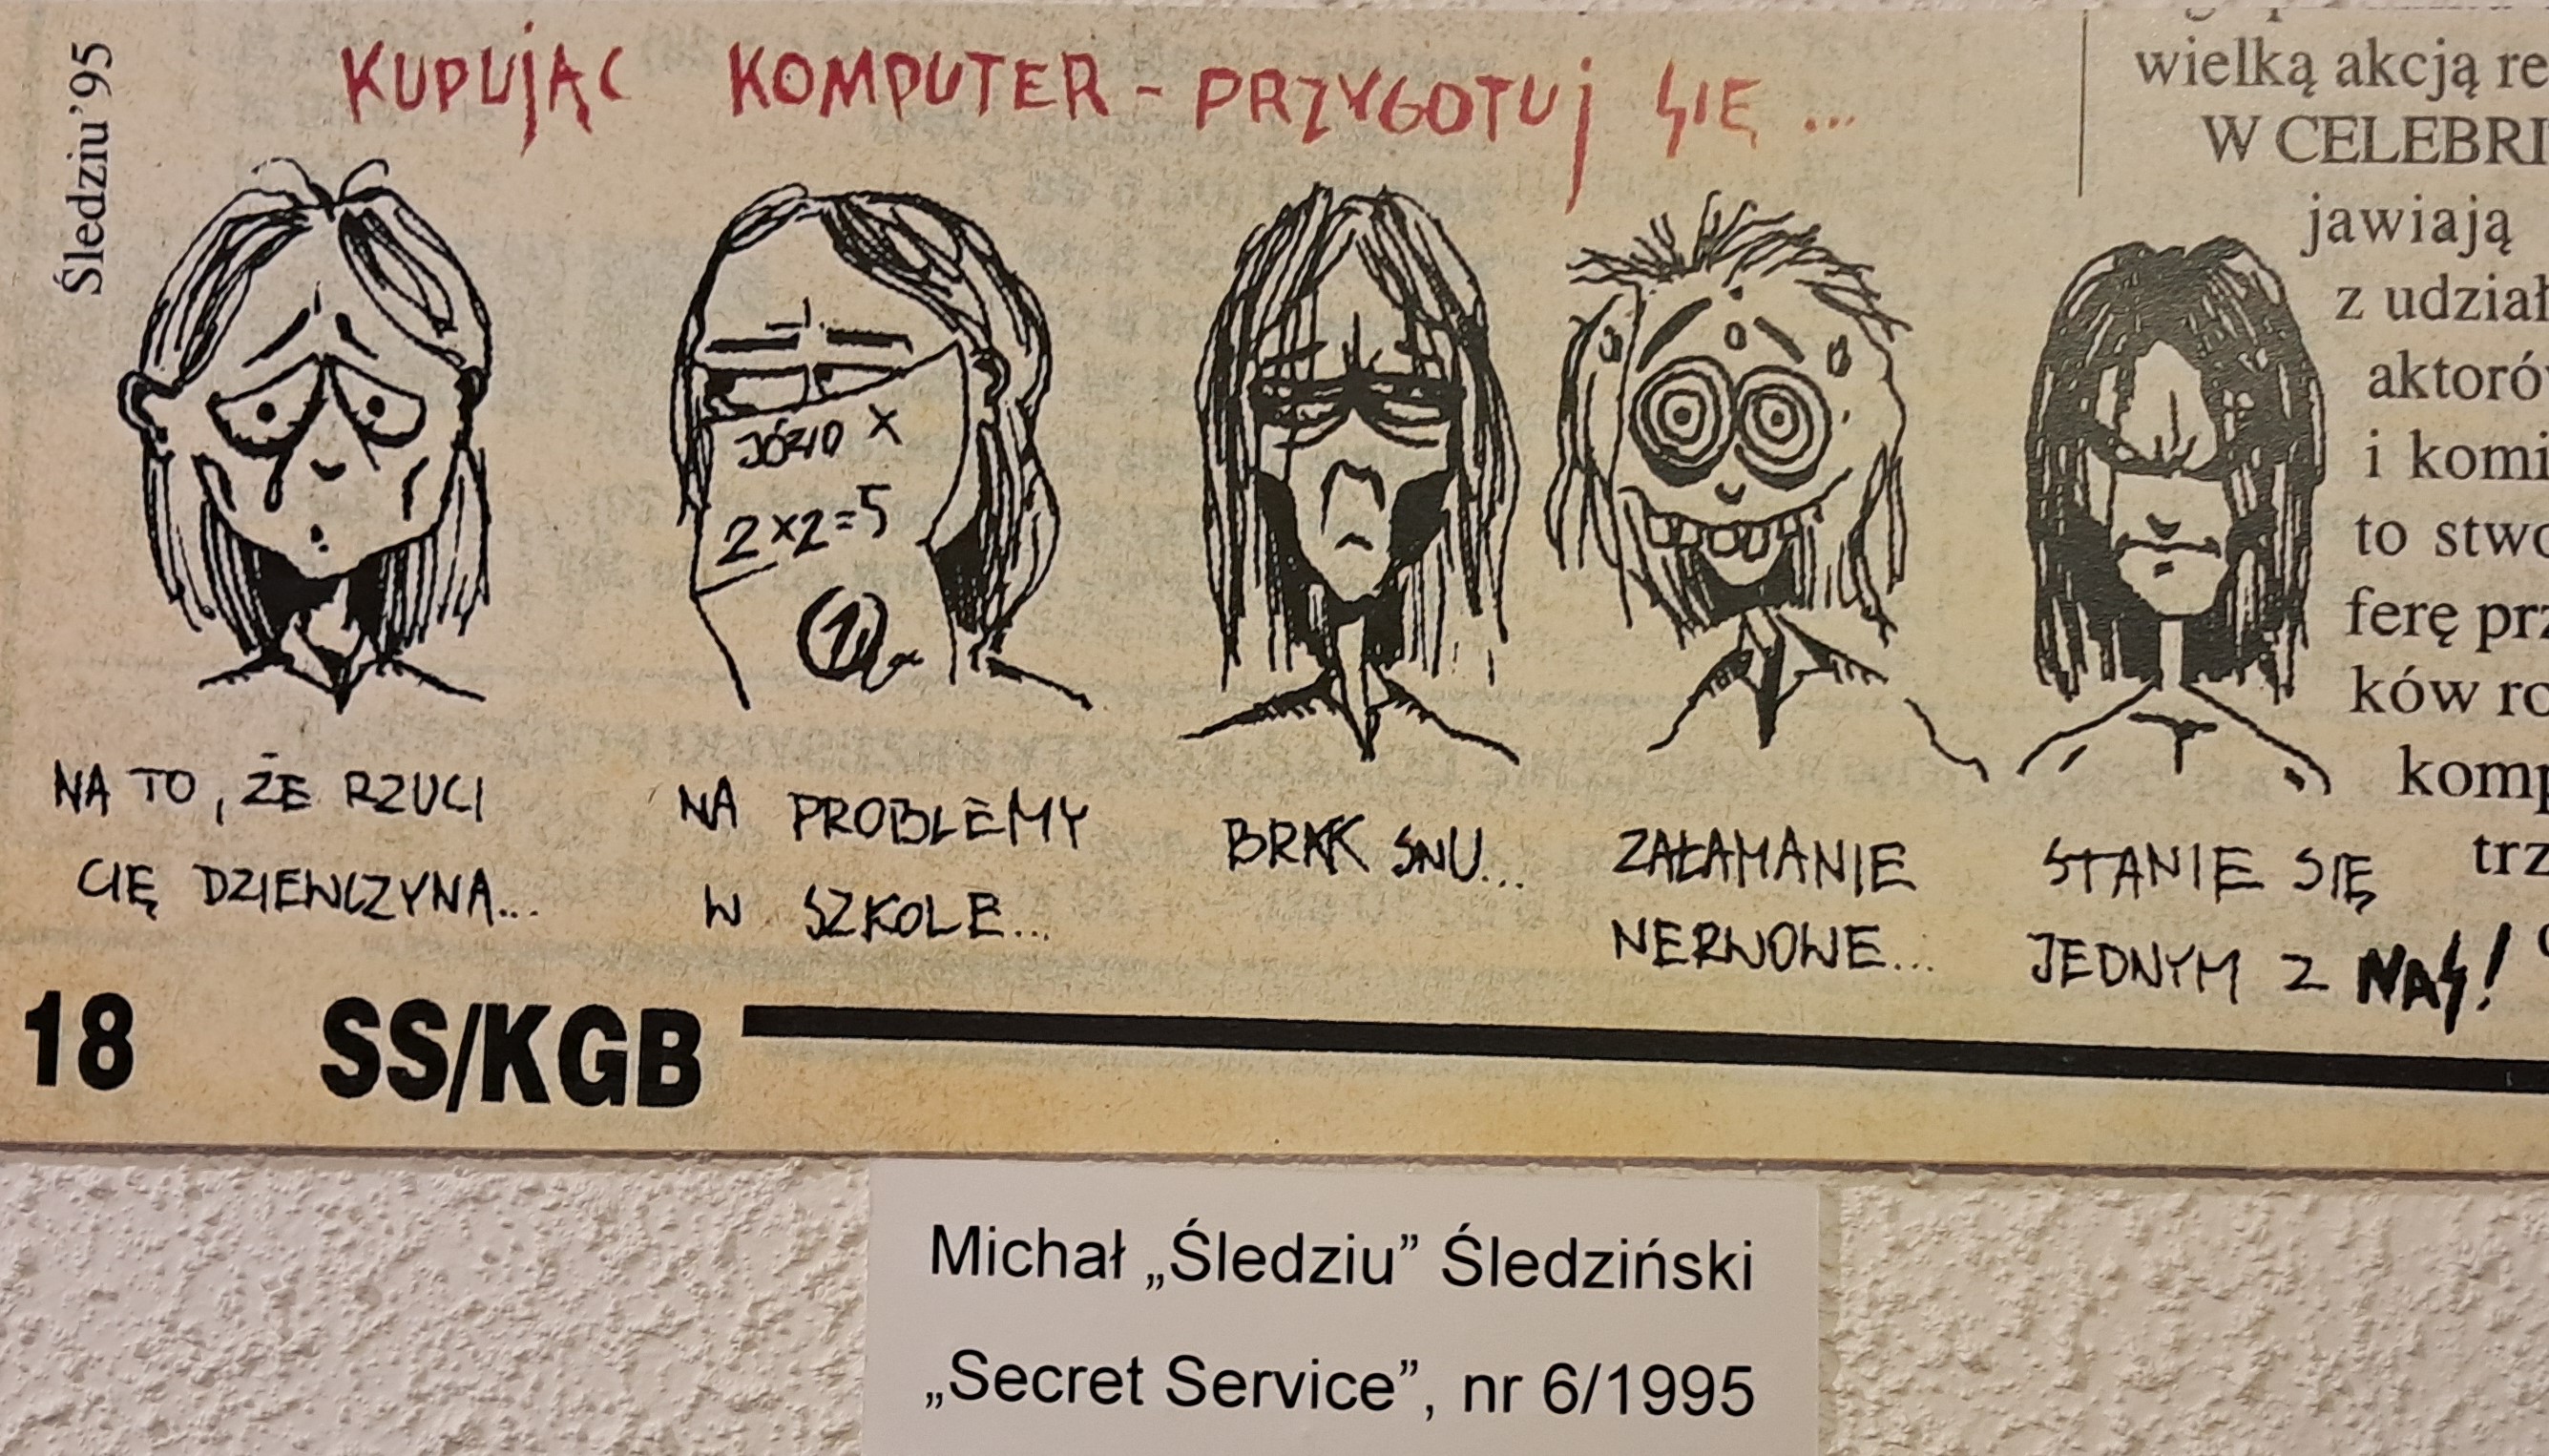 Śledziu'95
KUPUJĄC KOMPUTER - PRZYGOTUJ SIĘ ...
JÓZIO X
2x2=5
1
NA TO, ŻE RZUCI
CIĘ DZIEWCZYNA...
NA PROBLEMY
W SZKOLE...
BRAK SNU...
ZAŁAMANIE
NERWOWE...
STANIE SIĘ
JEDNYM Z NAS!
wielką akcją re
W CELEBRI
jawiają
z udział
aktoró
i komi
to stwo
ferę prz
ków ro
komp
trz
18 SS/KGB
Michał „Śledziu” Śledziński
„Secret Service”, nr 6/1995